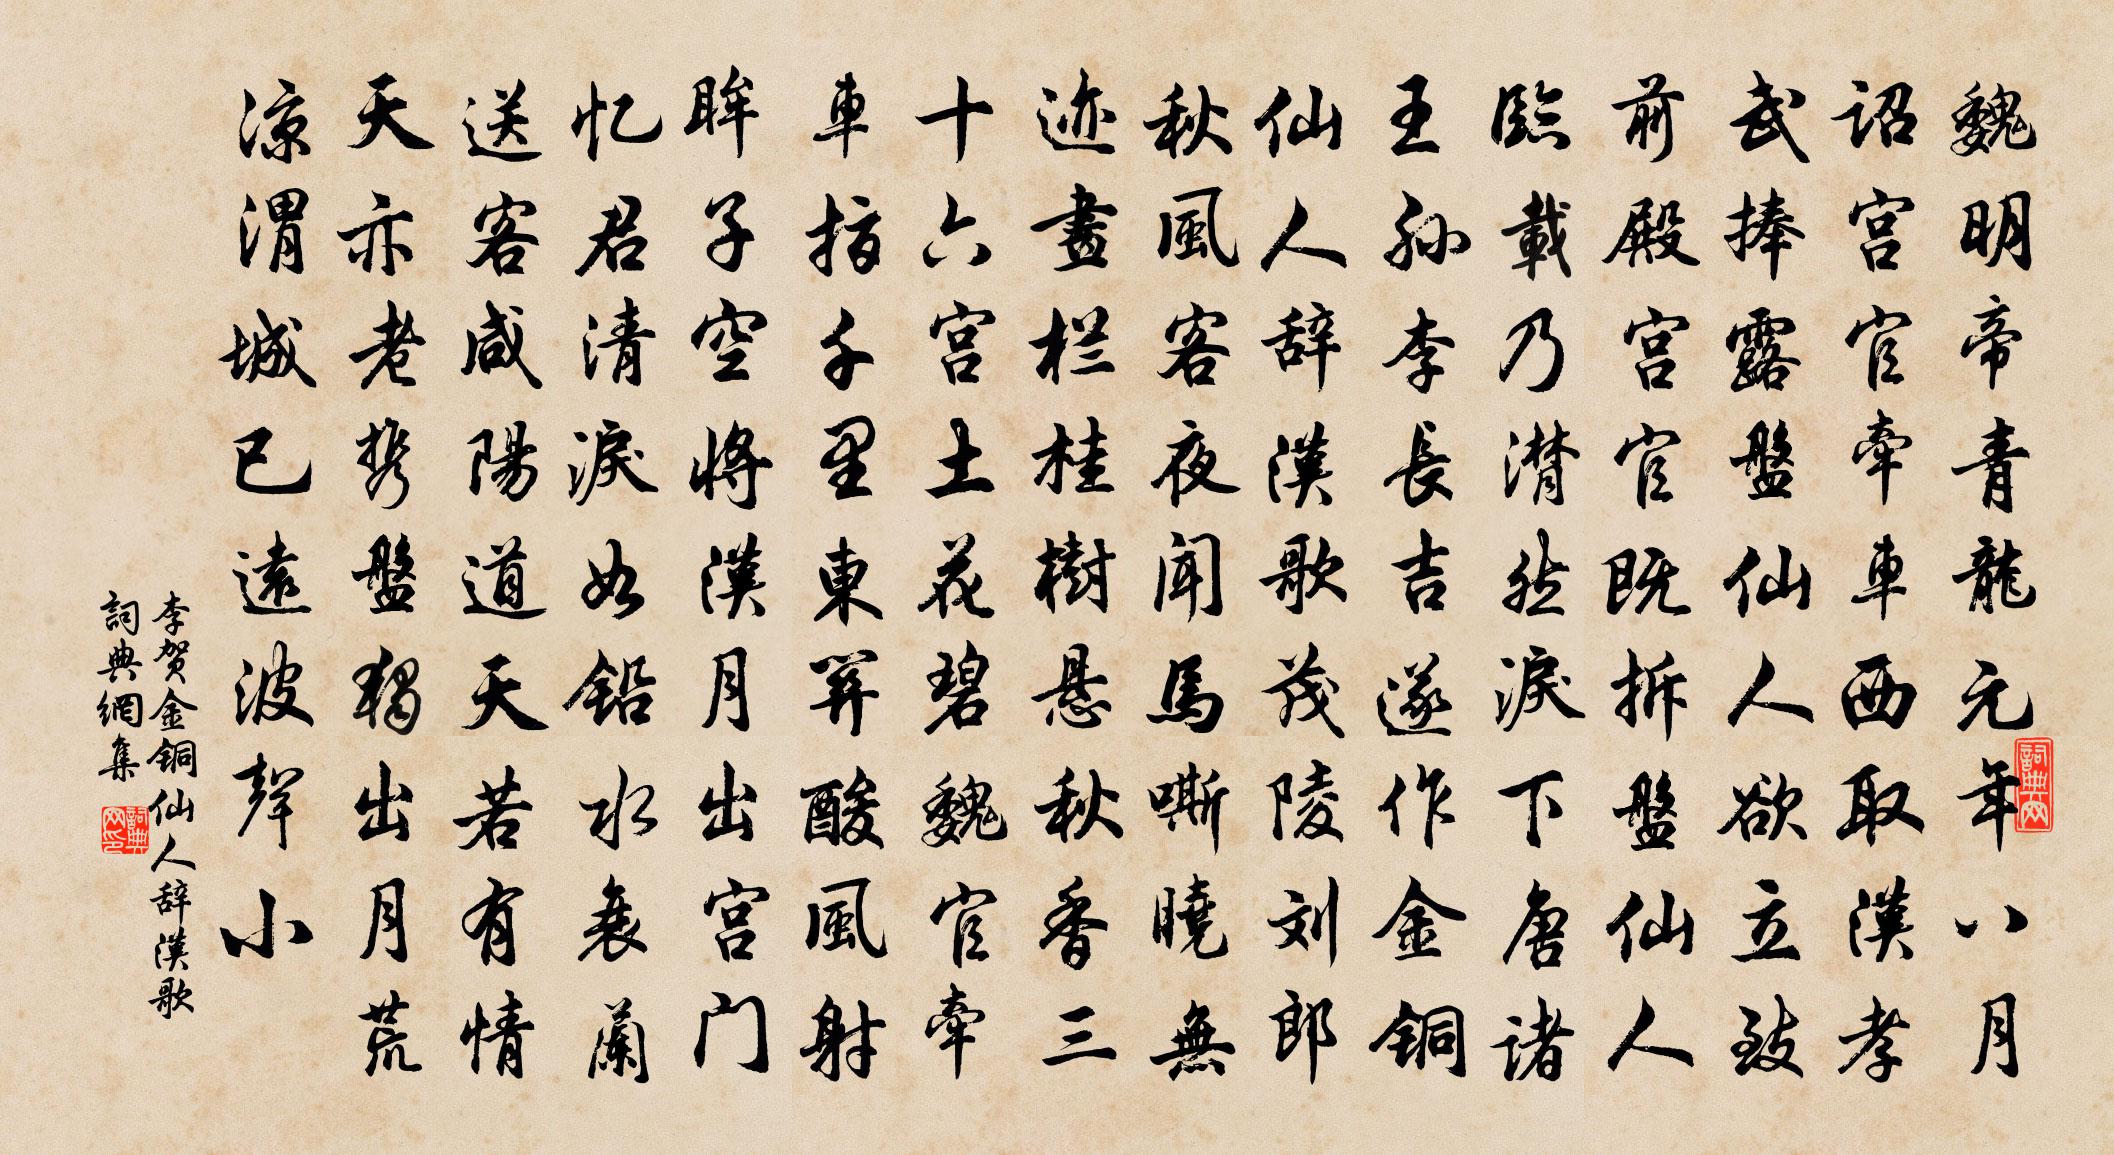 魏明帝青龍元年八月
詔宫官牽車西取漢孝
武捧露盤仙人欲立致
前殿宫官既拆盤仙人
臨載乃潸然淚下唐諸
王孙李長吉遂作金铜
仙人辞漢歌茂陵刘郎
秋風客夜聞馬嘶曉無
迹畫栏桂樹悬秋香三
十六宫土花碧魏官牽
車指千里東關酸風射
眸子空将漢月出宫门
忆君清淚如铅水衰蘭
送客咸陽道天若有情
天亦老携盤獨出月荒
凉渭城已遠波聲小
李贺金铜仙人辞漢歌
詞典網集
詞典网
詞典网印